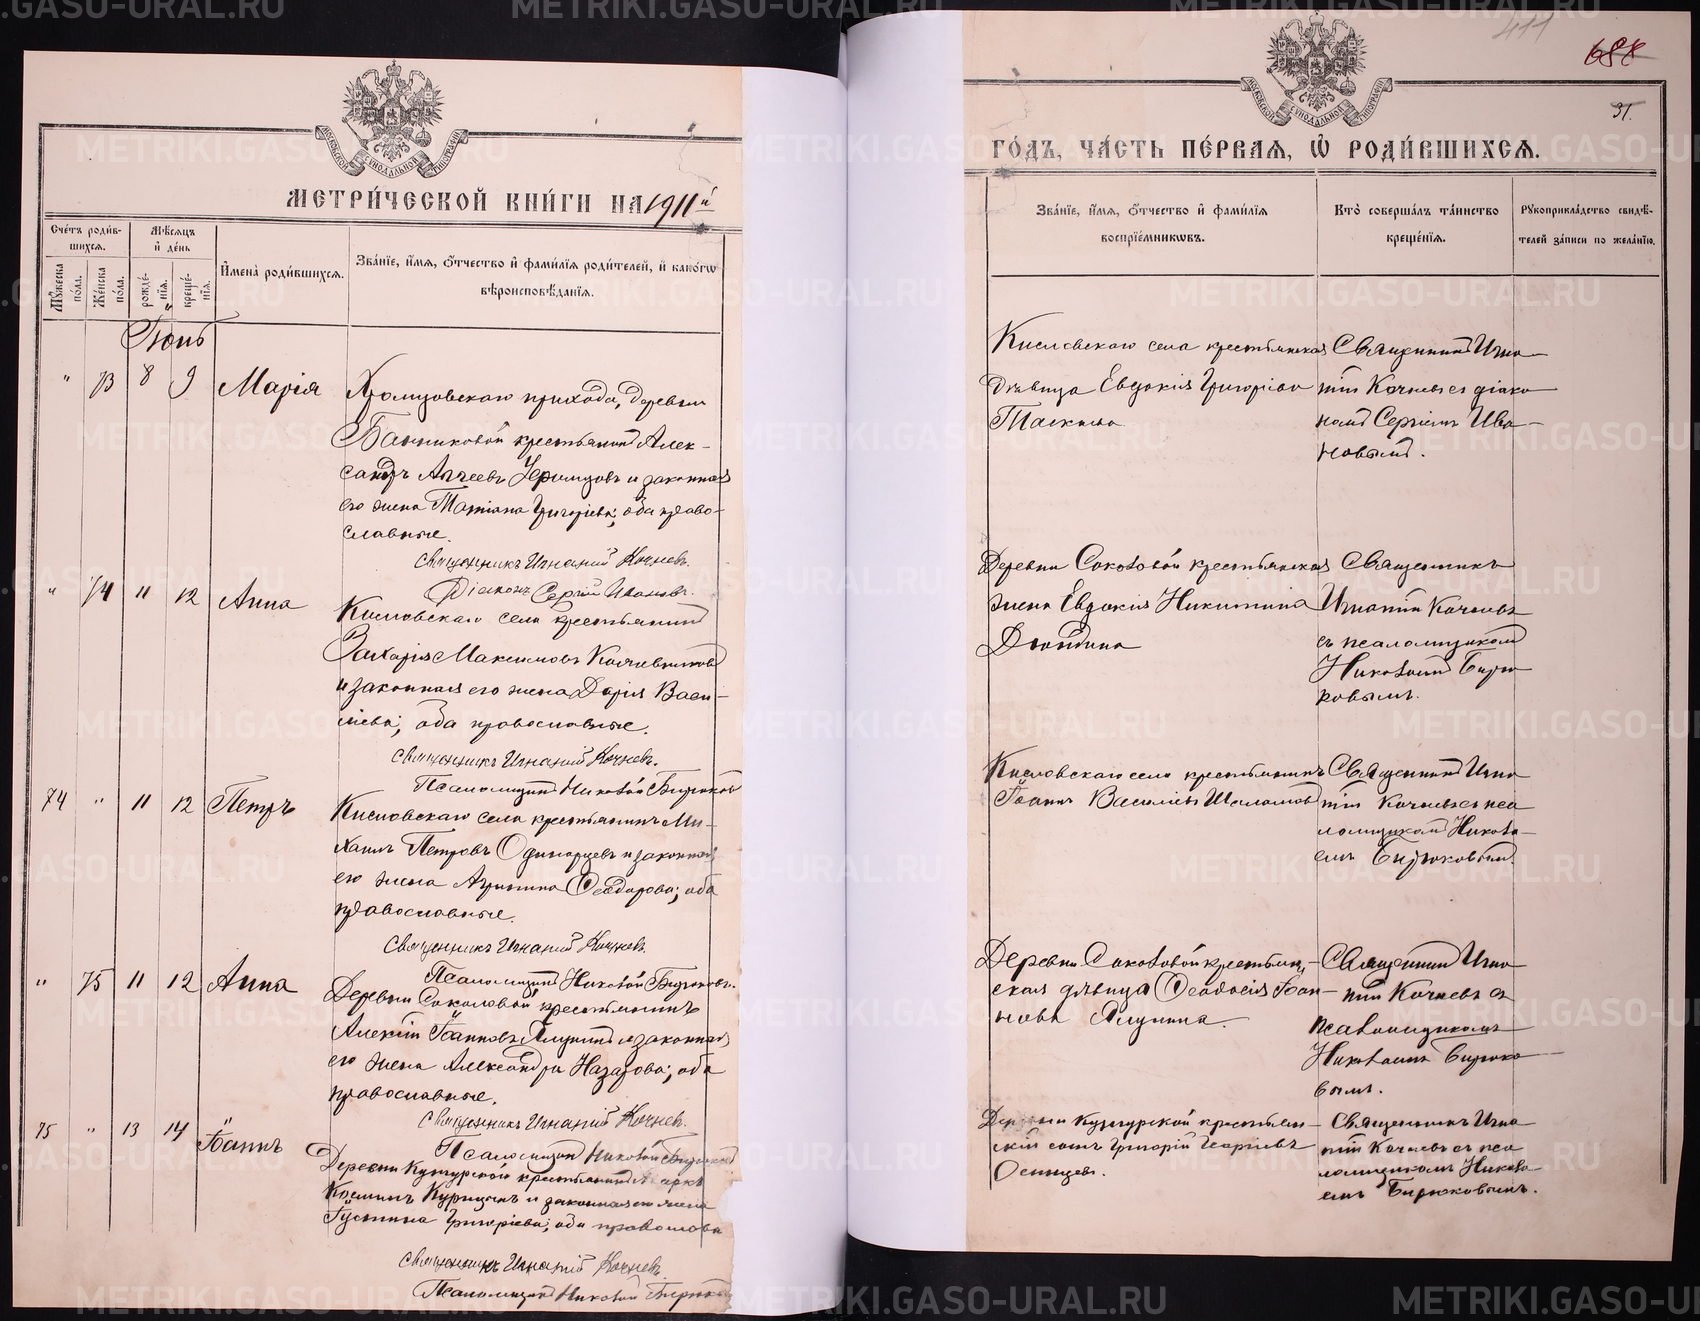 МЕТРИ́ЧЕСКОЙ КНИ́ГИ НА 1911й
Сче́тъ роди́в-
шихсѧ.
Мѣ́сѧцъ
и҆ де́нь
Мꙋ́жеска по́ла.
Же́нска по́ла.
рожде́-
нїѧ.
креще́-
нїѧ.
И҆мена̀ роди́вшихсѧ.
Зва́нїе, и҆́мѧ, ѻ҆́тчество и҆ фами́лїѧ роди́телей, и҆ како́гѡ
вѣроисповѣ́данїѧ.
Іюнь
" 73 8 9 Марія
прихода, деревни
Банниковой крестьянинъ Алек-
сандръ и законная
его жена Татіана Григорьева; оба право-
славные.
Священникъ Игнатій Кочневъ.
Діаконъ Сергій Ивановъ.
" 74 11 12 Анна
Кисловскаго села крестьянинъ
Захарія Максимовъ
и законная его жена Дарія Васи-
ліева; оба православные.
Священникъ Игнатій Кочневъ.
Псаломщикъ Николай Бирюковъ
74 " 11 12 Петръ
Кисловскаго села крестьянинъ Ми-
хаилъ Петровъ Одинарцевъ и законная
его жена Агрипина Ѳеодорова; оба
православные.
Священникъ Игнатій Кочневъ.
Псаломщикъ Николай Бирюковъ.
" 75 11 12 Анна
Деревни Соколовой крестьянинъ
Алексій Іоанновъ и законная
его жена Александра Назарова; оба
православные.
Священникъ Игнатій Кочневъ.
Псаломщикъ Николай Бирюковъ
75 " 13 14 Іоаннъ
Деревни крестьянинъ
Косминъ и законная его жена
Іустина Григоріева; оба православн
Священникъ Игнатій Кочневъ.
Псаломщикъ Николай Бирюков
411
688
31.
ГО́ДЪ, ЧА́СТЬ ПЕ́РВАѦ, Ѡ҆ РОДИ́ВШИХСѦ.
Зва́нїе, и҆́мѧ, ѻ҆́тчество и҆ фами́лїѧ
воспрїе́мникѡвъ.
Кто̀ соверша́лъ та́инство
креще́нїѧ.
Рꙋкоприкла́дство свидѣ́-
телей за́писи по жела́нїю.
Кисловскаго села крестьянская
дѣвица Евдокія Григоріева
Священникъ Игна-
тій Кочневъ съ діако-
номъ Сергіемъ Ива-
новымъ.
Деревни Соколовой крестьянская
жена Евдокія Никитина
Священникъ
Игнатій Кочневъ
съ псаломщикомъ
Николаемъ Бирю-
ковымъ.
Кисловскаго села крестьянинъ
Іоаннъ Василіевъ Шаламовъ
Священникъ Игна-
тій Кочневъ съ пса-
ломщикомъ Никола-
емъ Бирюковымъ.
Деревни Соколовой крестьян-
ская дѣвица Ѳеодосія Іоан-
нова
Священникъ Игна-
тій Кочневъ съ
псаломщикомъ
Николаемъ Бирюко-
вымъ.
Деревни крестьян-
скій сынъ Григорій Георгіевъ
Осинцевъ.
Священникъ Игна-
тій Кочневъ съ пса-
ломщикомъ Никола-
емъ Бирюковымъ.
METRIKI.GASO-URAL.RU